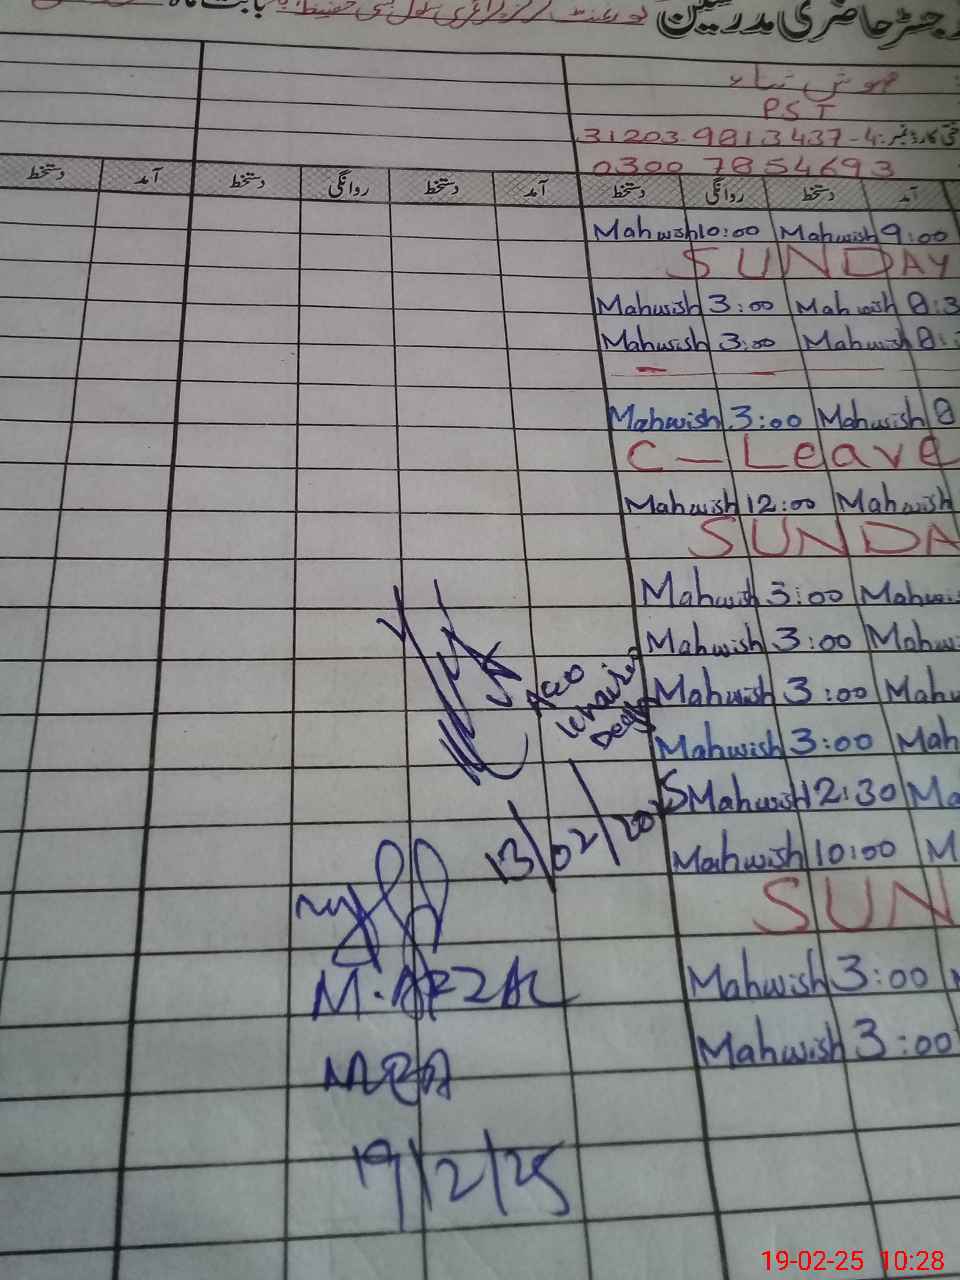 رجسٹر حاضری مدرسین گورنمنٹ گرلز پرائمری سکول بستی حفیظ آباد بابت ماہ
مہوش ثناء
PST
31203-9813437-4
0300 7854693
آمد دستخط روانگی دستخط آمد دستخط روانگی دستخط آمد دستخط
Mahwish 10:00 Mahwish 9:00
SUNDAY
Mahwish 3:00 Mahwish 8:3
Mahwish 3:00 Mahwish 8:
Mahwish 3:00 Mahwish 8
C - Leave
Mahwish 12:00 Mahwish
SUNDA
Mahwish 3:00 Mahwis
Mahwish 3:00 Mahwi
Mahwish 3:00 Mahw
Mahwish 3:00 Mah
Mahwish 12:30 Ma
Mahwish 10:00 M
SUN
Mahwish 3:00
Mahwish 3:00
AEO
13/02/2025
M. AFZAL
MEA
19/2/25
19-02-25 10:28